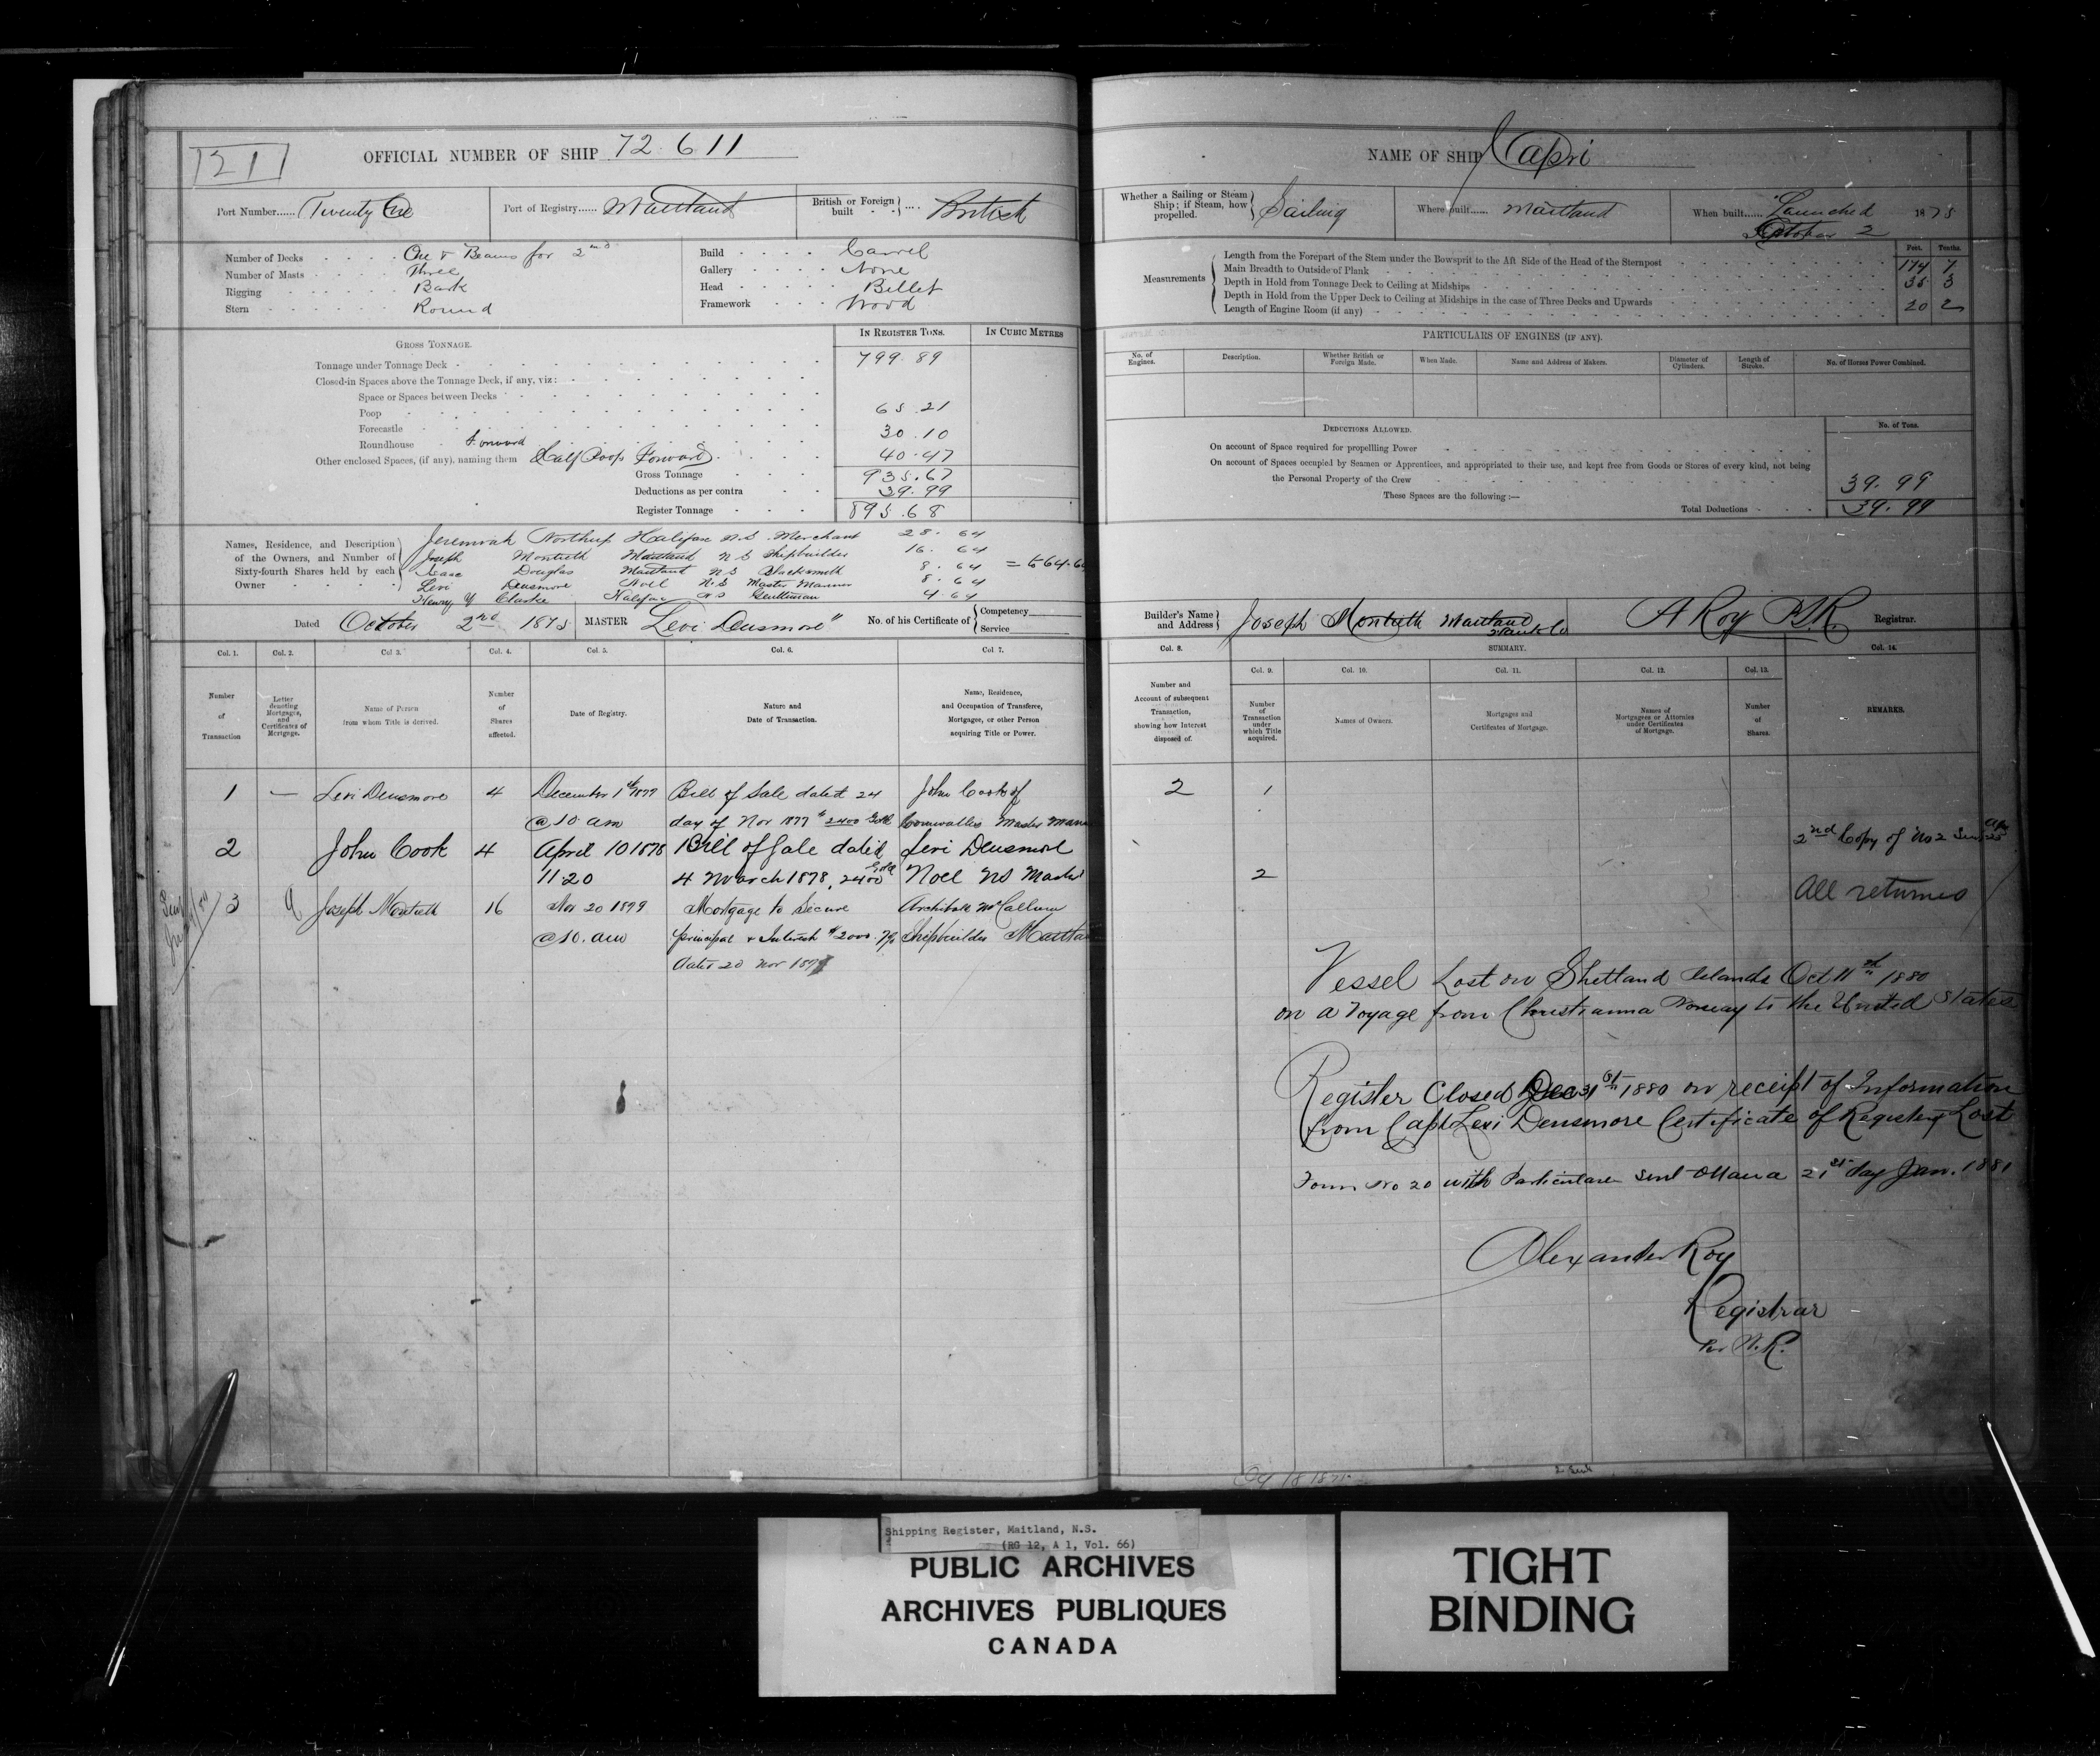 21
OFFICIAL NUMBER OF SHIP 72611
Port Number...... Twenty One
Port of Registry...... Maitland
British or Foreign built .... British
Number of Decks One & Beams for 2nd
Number of Masts Three
Rigging Bark
Stern Round
Build Carvel
Gallery None
Head Billet
Framework Wood
IN REGISTER TONS. IN CUBIC METRES
GROSS TONNAGE.
Tonnage under Tonnage Deck 799.89
Closed-in Spaces above the Tonnage Deck, if any, viz:
Space or Spaces between Decks
Poop 65.21
Forecastle
Roundhouse Forward 30.10
Other enclosed Spaces, (if any), naming them Half Poop Forward 40.47
Gross Tonnage 935.67
Deductions as per contra 39.99
Register Tonnage 895.68
Names, Residence, and Description of the Owners, and Number of Sixty-fourth Shares held by each Owner
Jeremiah Northup Halifax N.S. Merchant 28.64
Joseph Monteith Maitland N S Shipbuilder 16.64
Isaac Douglas Maitland N S Blacksmith 8.64
Levi Densmore Noel N.S Master Mariner 8.64
Henry Y Clarke Halifax N S Gentleman 4.64
Dated October 2nd 1875 MASTER Levi Densmore"
No. of his Certificate of Competency Service
Col. 1. Col. 2. Col 3. Col. 4. Col. 5. Col. 6. Col 7.
Number of Transaction
Letter denoting Mortgages, and Certificates of Mortgage.
Name of Person from whom Title is derived.
Number of Shares affected.
Date of Registry.
Nature and Date of Transaction.
Name, Residence, and Occupation of Transferee, Mortgagee, or other Person acquiring Title or Power.
1 — Levi Densmore 4 December 1st 1877 Bill of Sale dated 24 John Cook of
@ 10 am day of Nov 1877 $2400 Gold Cornwallis Master
2 John Cook 4 April 10 1878 Bill of Sale dated Levi Densmore
11.20 4 March 1878, 2400 Gold Noel NS Master
3 Joseph Monteith 16 Nov 20 1899 Mortgage to Secure Archibald McCallum
@ 10. am principal & Interest $2000. 7% Shipbuilder
dated 20 Nov
NAME OF SHIP Capri
Whether a Sailing or Steam Ship; if Steam, how propelled. Sailing
Where built...... Maitland
When built...... Launched 1875
October 2
Measurements
Feet. Tenths.
Length from the Forepart of the Stem under the Bowsprit to the Aft Side of the Head of the Sternpost 174 7
Main Breadth to Outside of Plank 35 3
Depth in Hold from Tonnage Deck to Ceiling at Midships
Depth in Hold from the Upper Deck to Ceiling at Midships in the case of Three Decks and Upwards 20 2
Length of Engine Room (if any)
PARTICULARS OF ENGINES (IF ANY).
No. of Engines. Description. Whether British or Foreign Made. When Made. Name and Address of Makers. Diameter of Cylinders. Length of Stroke. No. of Horses Power Combined.
DEDUCTIONS ALLOWED. No. of Tons.
On account of Space required for propellling Power
On account of Spaces occupied by Seamen or Apprentices, and appropriated to their use, and kept free from Goods or Stores of every kind, not being
the Personal Property of the Crew 39.99
These Spaces are the following :—
Total Deductions 39.99
Builder's Name and Address Joseph Monteith Maitland Hants Co
A Roy Registrar.
Col. 8. SUMMARY. Col. 14.
Col. 9. Col. 10. Col. 11. Col. 12. Col. 13.
Number and Account of subsequent Transaction, showing how Interest disposed of.
Number of Transaction under which Title acquired.
Names of Owners.
Mortgages and Certificates of Mortgage.
Names of Mortgagees or Attornies under Certificates of Mortgage.
Number of Shares.
REMARKS.
2 1
2nd Copy of No 2
2
All returned
Vessel Lost on Shetland Islands Oct 11 1880
on a Voyage from Christianna Norway to the United States
Register Closed Dec 31st 1880 on receipt of Information
from Capt Levi Densmore Certificate of Registery Lost
Form No 20 with Particulars sent Ottawa 21st day Jan. 1881
Alexander Roy
Registrar
Per N.R.
Shipping Register, Maitland, N.S.
(RG 12, A 1, Vol. 66)
PUBLIC ARCHIVES
ARCHIVES PUBLIQUES
CANADA
TIGHT
BINDING